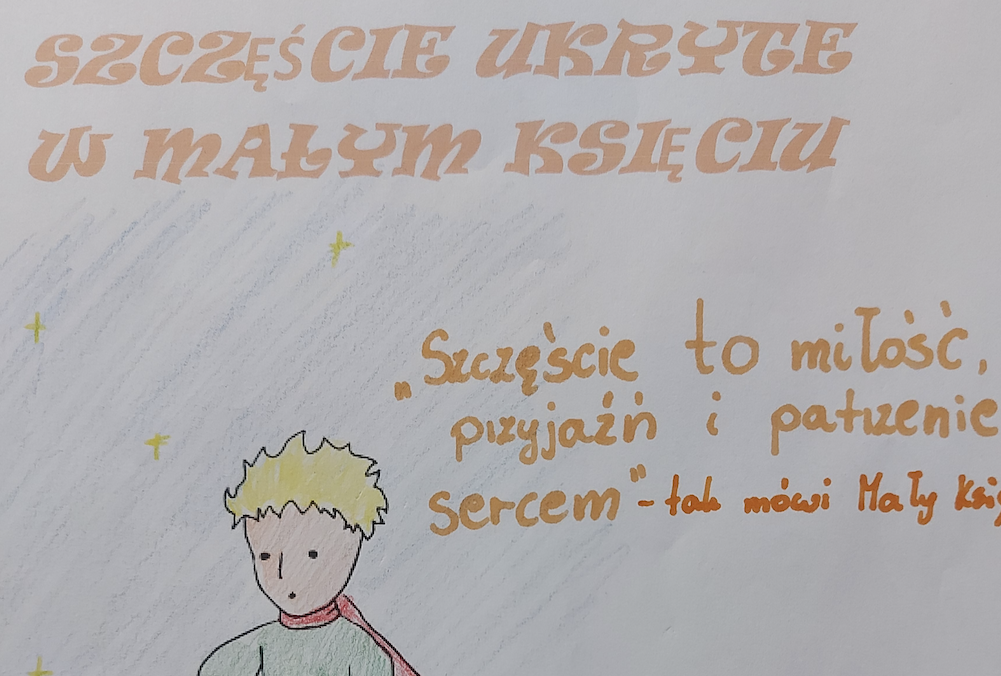 SZCZĘŚCIE UKRYTE
W MAŁYM KSIĘCIU
„Szczęście to miłość,
przyjaźń i patrzenie
sercem" - tak mówi Mały